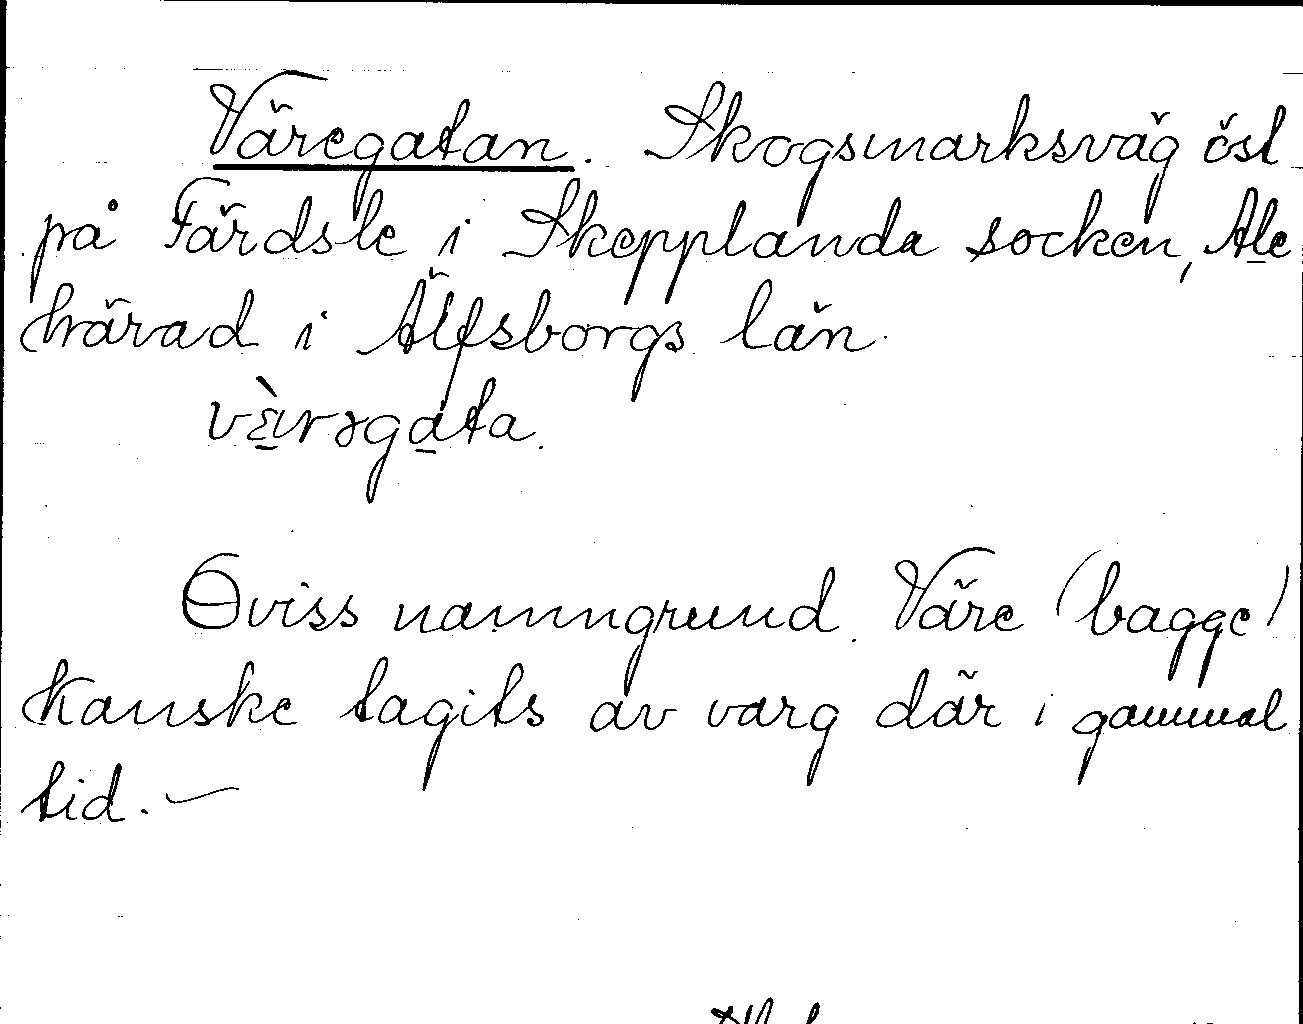 Väregatan. Skogsmarksväg öst
på Färdsle i Skepplanda socken, Ale
härad i Älfsborgs län.
vɛ̀rəgata.
Oviss namngrund. Väre (bagge)
kanske tagits av varg där i gammal
tid. —